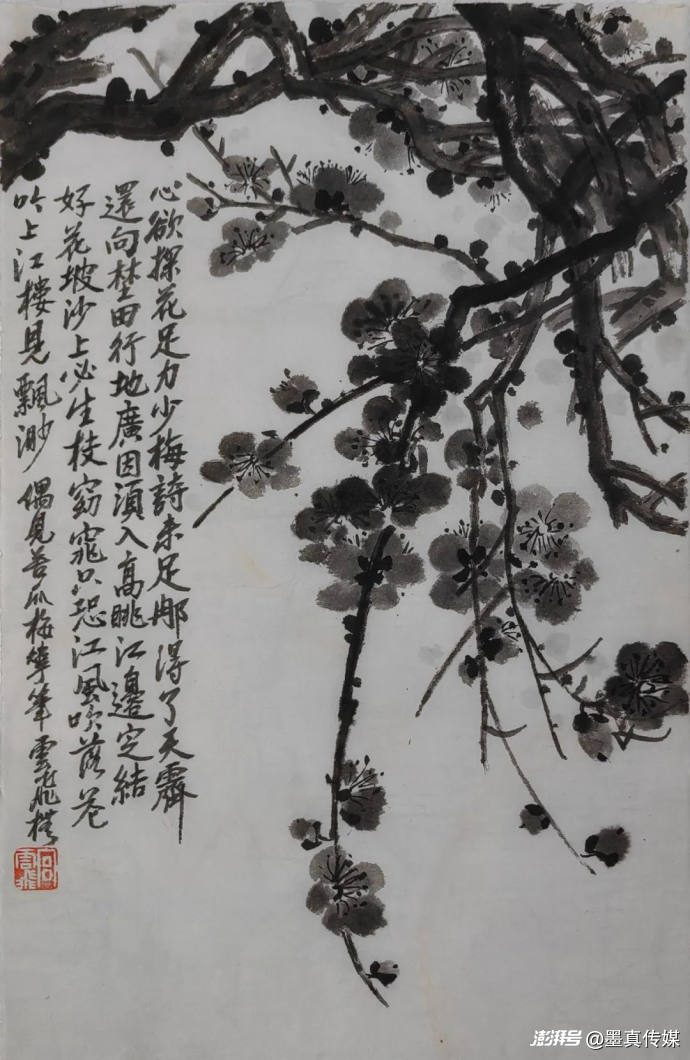 心欲探花足力少梅詩未足那得了天霽
還向埜田行地廣因須入高眺江邊定結
好花坡沙上必生枝窈窕只恐江風吹落花
吟上江樓見飄渺 偶見苦瓜梅華筆 雲飛橅
澎湃号@墨真传媒